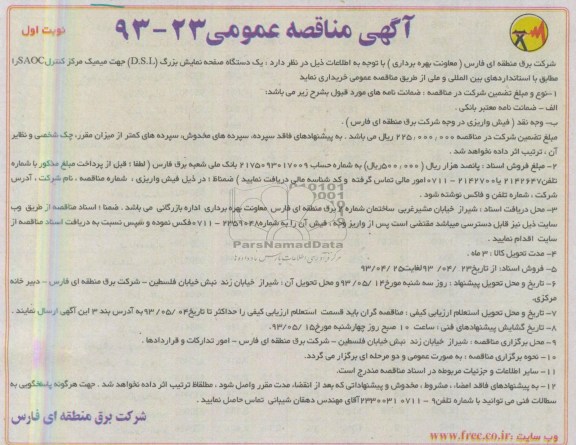 آگهی مناقصه عمومی ۲۳ - ۹۳
نوبت اول
شرکت برق منطقه ای فارس ( معاونت بهره برداری ) با توجه به اطلاعات ذیل در نظر دارد ، یک دستگاه صفحه نمایش بزرگ (D.S.L) جهت میمیک مرکز کنترل SAOC را
مطابق با استانداردهای بین المللی و ملی از طریق مناقصه عمومی خریداری نماید
۱- نوع و مبلغ تضمین شرکت در مناقصه : ضمانت نامه های مورد قبول بشرح زیر می باشد:
الف - ضمانت نامه معتبر بانکی .
ب- وجه نقد ( فیش واریزی در وجه شرکت برق منطقه ای فارس ) .
مبلغ تضمین شرکت در مناقصه ۲۲۵،۰۰۰،۰۰۰ ریال می باشد . به پیشنهادهای فاقد سپرده، سپرده های مخدوش، سپرده های کمتر از میزان مقرر، چک شخصی و نظایر
آن ، ترتیب اثر داده نخواهد شد .
۲- مبلغ فروش اسناد : پانصد هزار ریال ( ۵۰۰،۰۰۰ریال) به شماره حساب ۲۱۷۵۰۹۳۰۱۷۰۰۹ بانک ملی شعبه برق فارس ( لطفا : قبل از پرداخت مبلغ مذکور با شماره
تلفن ۲۱۴۲۶۴۷ یا ۲۱۴۲۷۰۰ - ۰۷۱۱ امور مالی تماس گرفته و کد شناسه مالی دریافت نمایید ) ضمناط : در ذیل فیش واریزی ، شماره مناقصه ، نام شرکت ، آدرس
شرکت ، شماره تلفن و فاکس نوشته شود .
۳- محل دریافت اسناد : شیراز خیابان مشیرغربی ساختمان شماره ۲ برق منطقه ای فارس معاونت بهره برداری اداره بازرگانی می باشد . ضمنا : اسناد مناقصه از طریق وب
سایت ذیل نیز قابل دسترسی میباشد مقتضی است پس از واریز وجه ، فیش آن را به شماره ۲۳۵۹۰۴۸ - ۰۷۱۱ فکس نموده و سپس نسبت به دریافت اسناد مناقصه از
سایت اقدام نمایید .
۴- مدت تحویل کالا : ۳ ماه .
۵- فروش اسناد: از تاریخ ۲۳ /۰۴/ ۹۳ لغایت ۲۵ /۰۴/ ۹۳
۶- تاریخ و محل تحویل پیشنهاد : روز سه شنبه مورخ ۱۴ /۰۵/ ۹۳ و محل تحویل آن : شیراز خیابان زند نبش خیابان فلسطین - شرکت برق منطقه ای فارس - دبیر خانه
مرکزی.
۷- تاریخ و محل تحویل استعلام ارزیابی کیفی : مناقصه گران باید قسمت استعلام ارزیابی کیفی را حداکثر تا تاریخ ۰۴ /۰۵/ ۹۳ به آدرس بند ۳ این آگهی ارسال نمایند .
۸- تاریخ گشایش پیشنهادهای فنی ، ساعت ۱۰ صبح روز چهارشنبه مورخ ۱۵ /۰۵/ ۹۳.
۹- محل برگزاری مناقصه : شیراز خیابان زند نبش خیابان فلسطین - شرکت برق منطقه ای فارس - امور تدارکات و قراردادها .
۱۰- نحوه برگزاری مناقصه : به صورت عمومی و دو مرحله ای برگزار می گردد.
۱۱- سایر اطلاعات و جزئیات مربوطه در اسناد مناقصه مندرج است.
۱۲- به پیشنهادهای فاقد امضا ، مشروط ، مخدوش و پیشنهاداتی که بعد از انقضاء مدت مقرر واصل شود ، مطلقاظ ترتیب اثر داده نخواهد شد . جهت هرگونه پاسخگویی به
سطالات فنی می توانید با شماره تلفن ۹ - ۲۳۳۰۰۳۱ ۰۷۱۱ آقای مهندس دهقان شیبانی تماس حاصل نمایید .
شرکت برق منطقه ای فارس
وب سایت : www.frec.co.ir
ParsNamadData